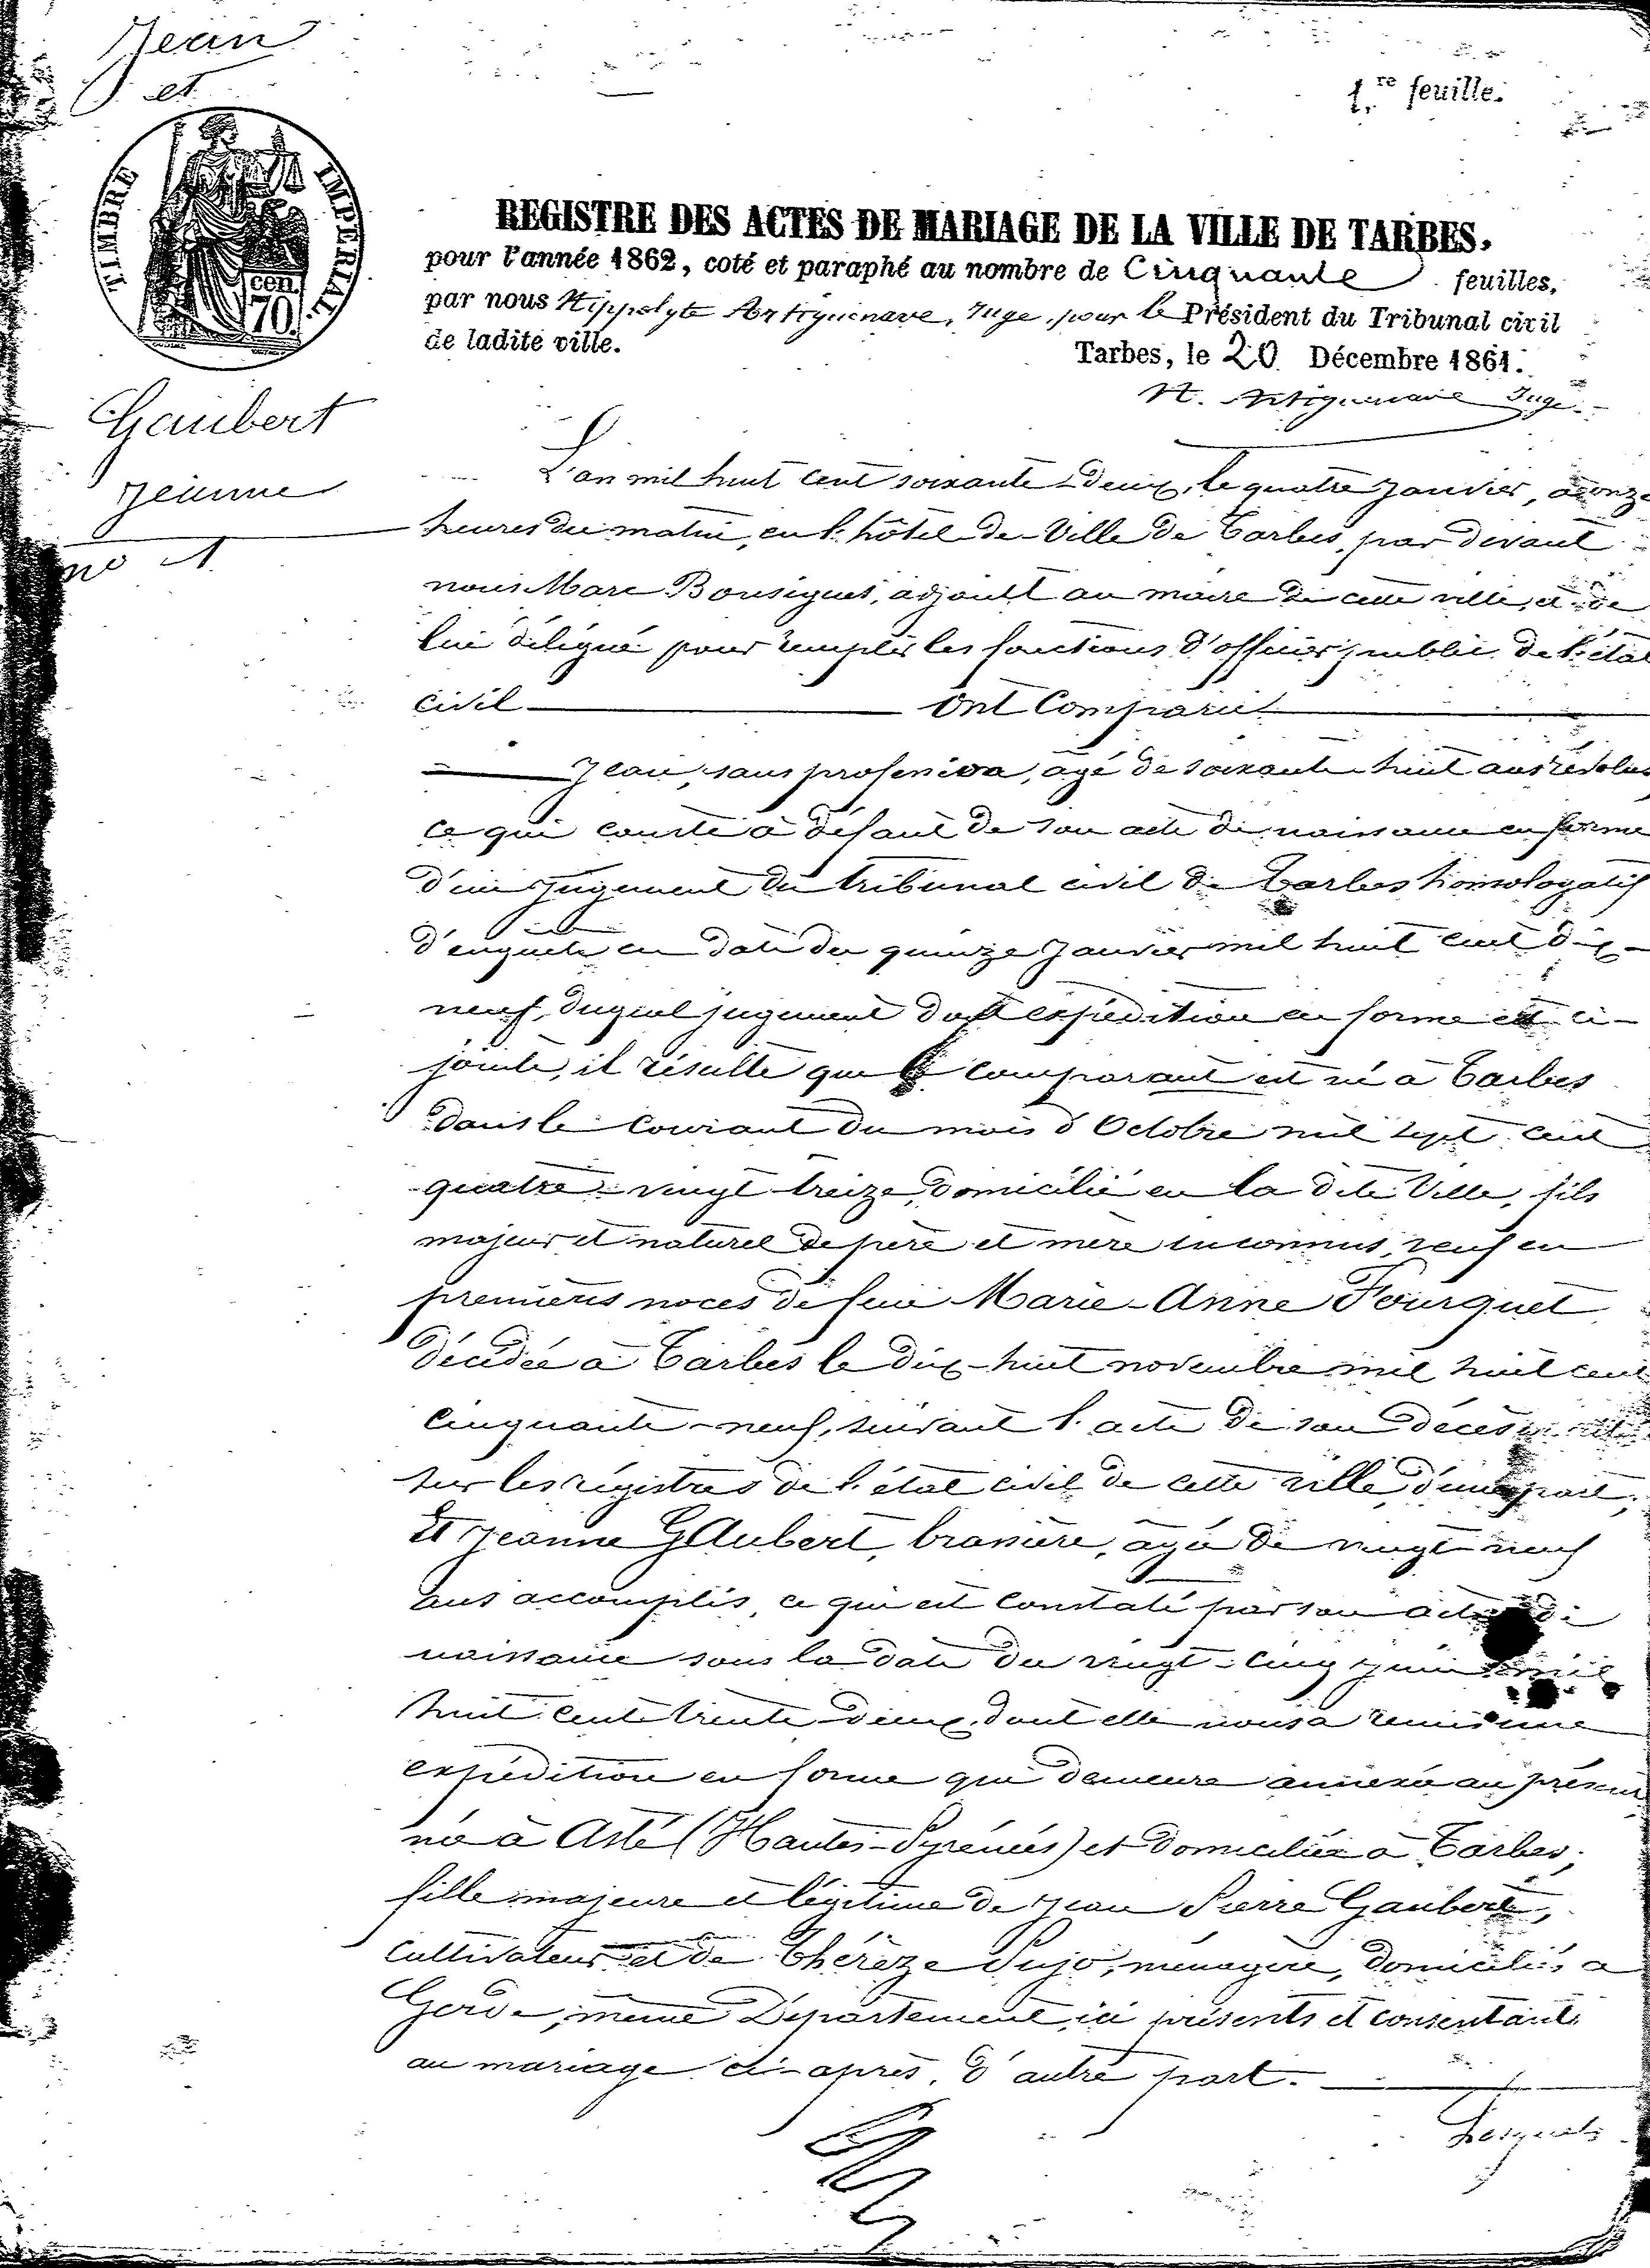 Jean
et
TIMBRE IMPERIAL
cen.
70.
Gaubert
Jeanne
no 1
1.re feuille.
REGISTRE DES ACTES DE MARIAGE DE LA VILLE DE TARBES.
pour l'année 1862, coté et paraphé au nombre de Cinquante feuilles,
par nous Hippolyte Artiguenave, Juge, pour le Président du Tribunal civil
de ladite ville.
Tarbes, le 20 Décembre 1861.
H. Artiguenave Juge
L'an mil huit cent soixante-deux, le quatre Janvier, à onze
heures du matin, en l'hôtel-de-Ville de Tarbes, par devant
nous Marc Bousigues, adjoint au maire de cette ville, et de
lui délégué pour remplir les fonctions d'officier public de l'état
civil ont Comparu
Jean, sans profession, agé de soixante-huit ans révolus
ce qui conste à défaut de son acte de naissance en forme
d'un jugement du tribunal civil de Tarbes homologatif
d'enquête en date du quinze Janvier mil huit cent dix-
neuf, duquel jugement dont expédition en forme est ci-
jointe, il résulte que le comparant est né à Tarbes
dans le courant du mois d'Octobre mil sept cent
quatre-vingt-treize, domicilié en la dite Ville, fils
majeur et naturel de père et mère inconnus, veuf en
premières noces de feue Marie-Anne Fourquet
décédée à Tarbes le dix-huit novembre mil huit cent
cinquante-neuf, suivant l'acte de son décès
sur les régistres de l'état civil de cette ville, d'une part,
Et Jeanne GAubert, brassière, agée de vingt-neuf
ans accomplis, ce qui est constaté par son acte de
naissance sous la date du vingt-cinq juin mil
huit cent trente-deux, dont elle nous a remis une
expédition en forme qui demeure annexée au présent
née à Asté (Hautes-Pyrénées) et domiciliée à Tarbes,
fille majeure et légitime de Jean Pierre Gaubert,
cultivateur et de Thérèze Pujo, ménagère, domiciliés à
Gerde, même Département, ici présents et consentants
au mariage ci-après, d'autre part.